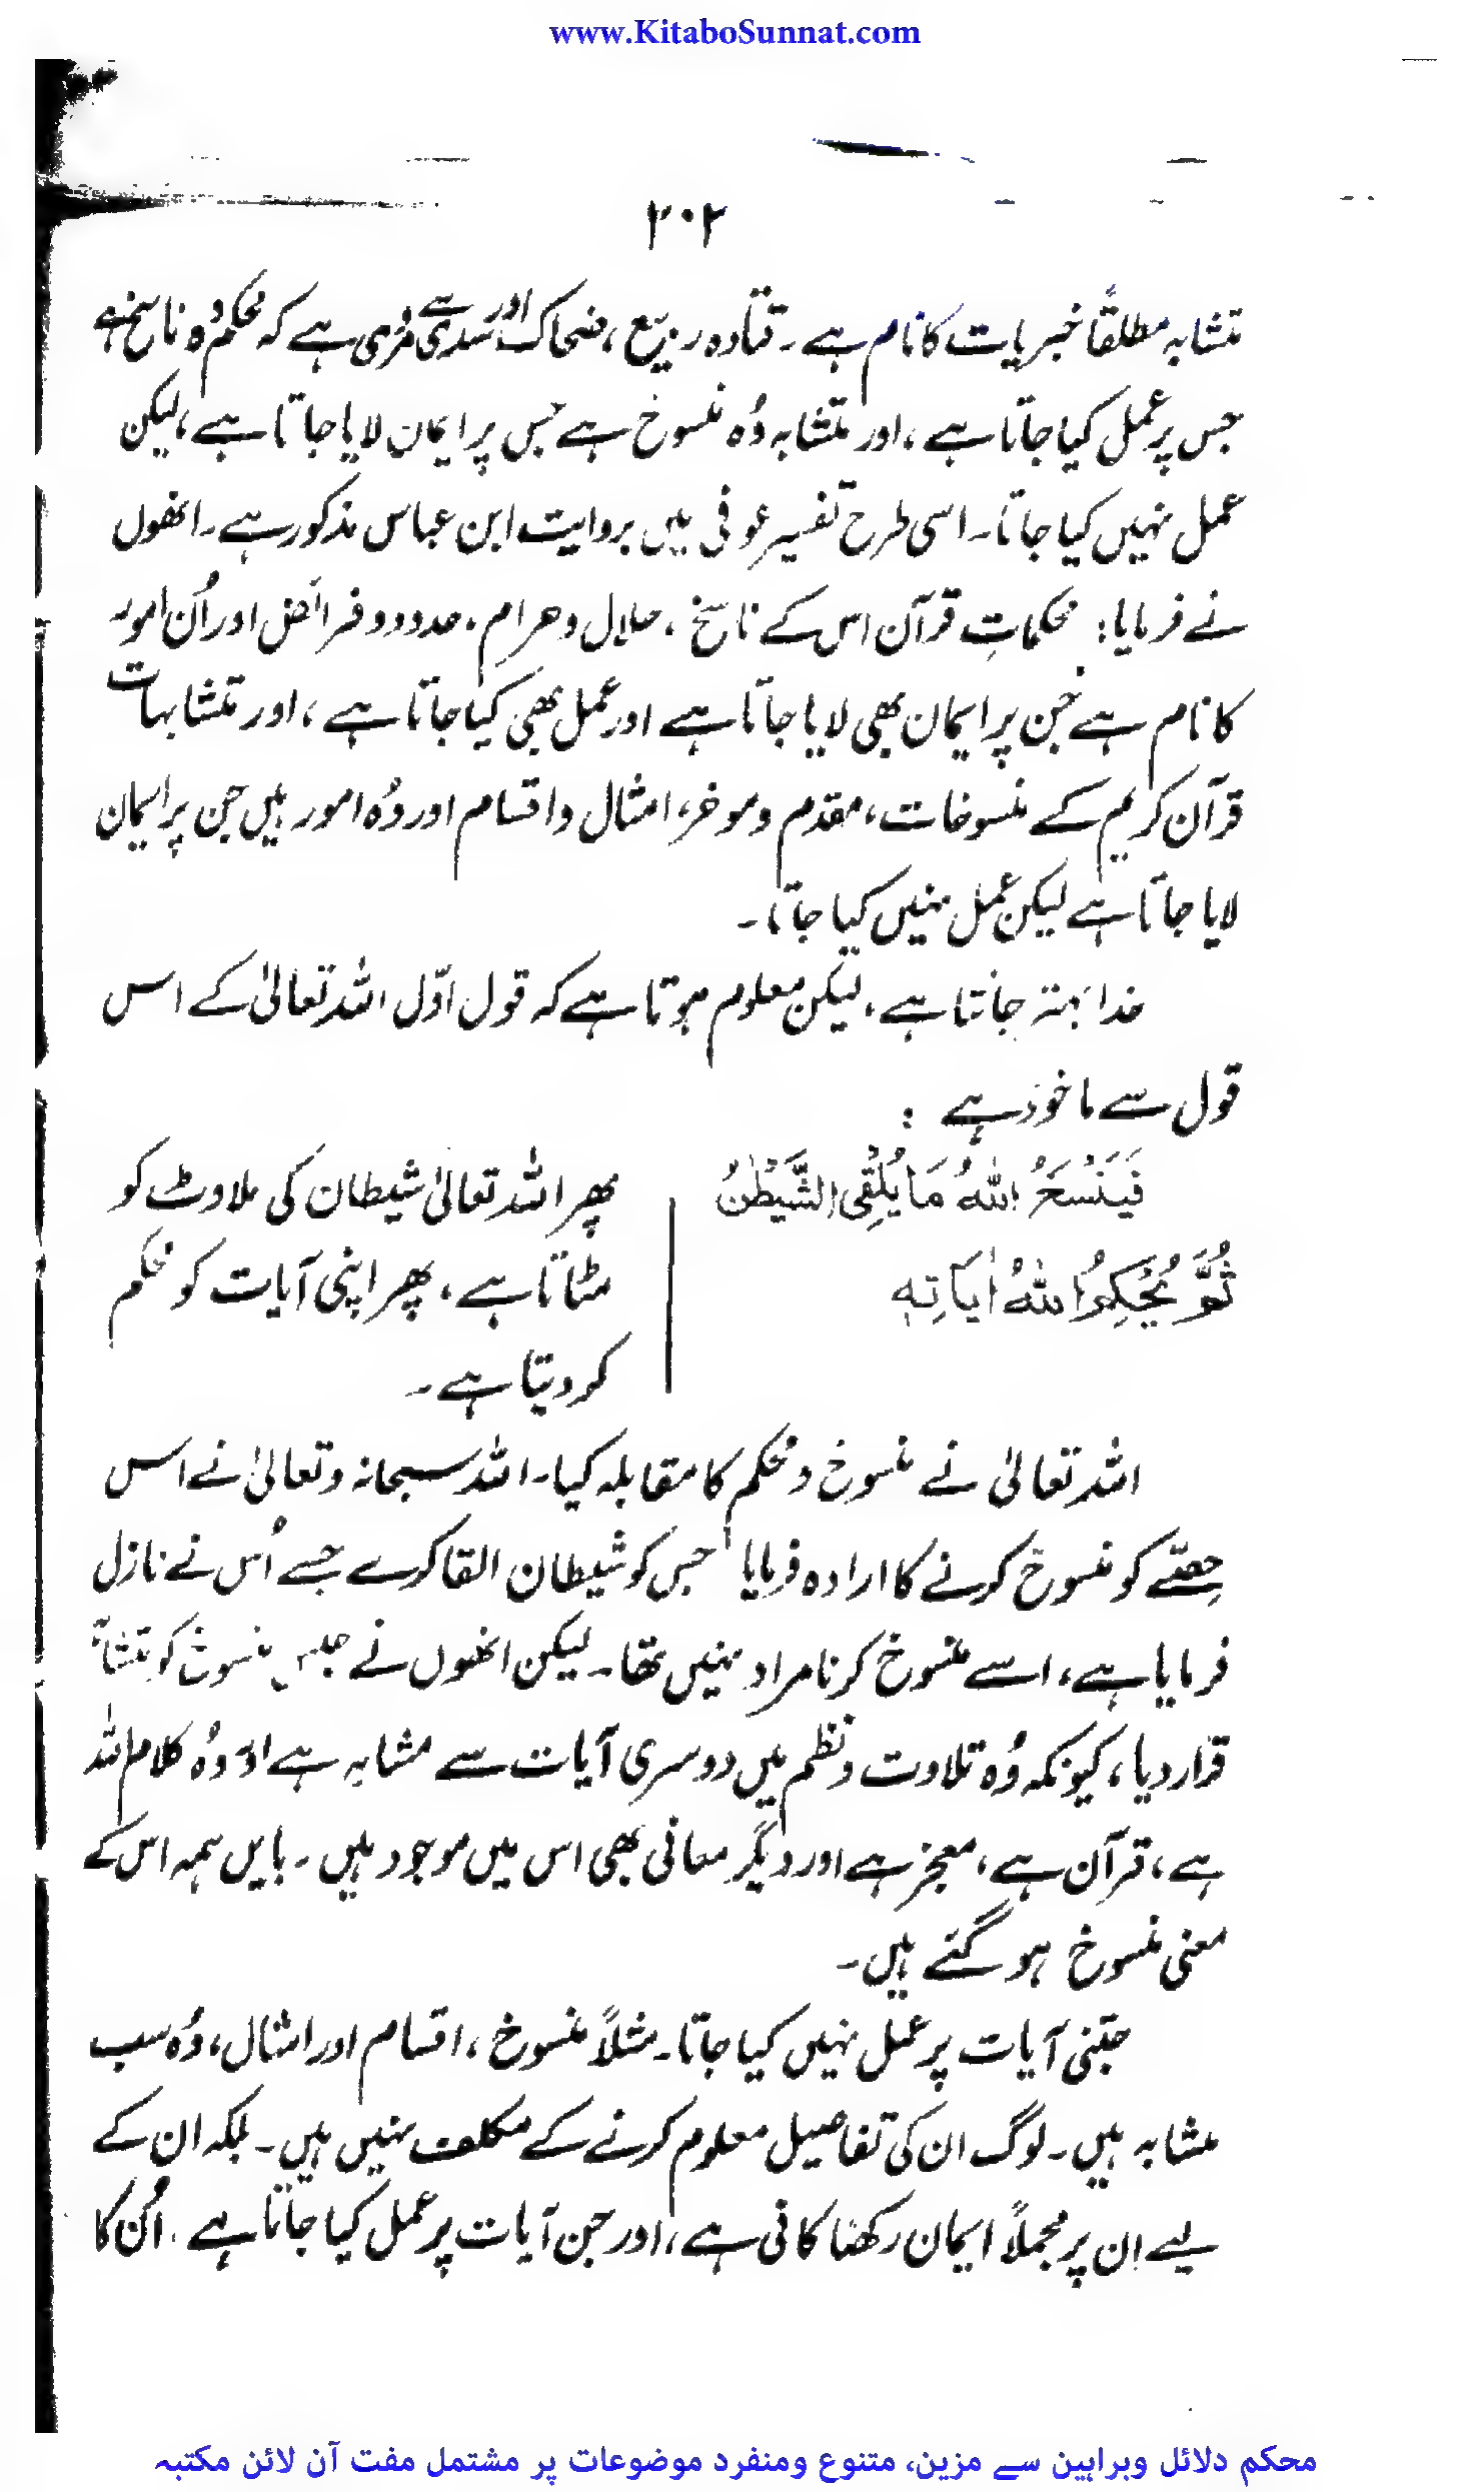 www.KitaboSunnat.com
۲۰۲
متشابہ مطلقاً خبریات کا نام ہے۔ قتادہ ربیع، ضحاک اور سدی سے مروی ہے کہ محکم وہ ناسخ ہے
جس پر عمل کیا جاتا ہے، اور متشابہ وُہ منسوخ ہے جس پر ایمان لایا جاتا ہے، لیکن
عمل نہیں کیا جاتا۔ اسی طرح تفسیر عوفی میں بروایت ابن عباس مذکور ہے۔ انھوں
نے فرمایا: محکماتِ قرآن اس کے ناسخ، حلال و حرام، حدود و فرائض اور اُن امور
کا نام ہے جن پر ایمان بھی لایا جاتا ہے اور عمل بھی کیا جاتا ہے، اور متشابہات
قرآن کریم کے منسوخات، مقدم و موخر، امثال و اقسام اور وُہ امور ہیں جن پر ایمان
لایا جاتا ہے لیکن عمل نہیں کیا جاتا۔
خدا بہتر جانتا ہے، لیکن معلوم ہوتا ہے کہ قول اوّل اللہ تعالیٰ کے اس
قول سے ماخوذ ہے :
فَيَنْسَخُ اللهُ مَا يُلْقِى الشَّيْطٰنُ
ثُمَّ يُحْكِمُ اللهُ اٰيَاتِهٖ
پھر اللہ تعالیٰ شیطان کی ملاوٹ کو
مٹاتا ہے، پھر اپنی آیات کو محکم
کر دیتا ہے۔
اللہ تعالیٰ نے منسوخ و محکم کا مقابلہ کیا۔ اللہ سبحانہ و تعالیٰ نے اس
حِصّے کو منسوخ کرنے کا ارادہ فرمایا جس کو شیطان القا کرے جسے اُس نے نازل
فرمایا ہے، اسے منسوخ کرنا مراد نہیں تھا۔ لیکن انھوں نے جنس منسوخ کو متشابہ
قرار دیا، کیونکہ وُہ تلاوت و نظم میں دوسری آیات سے مشابہ ہے اور وُہ کلام اللہ
ہے، قرآن ہے، معجز ہے اور دیگر معانی بھی اس میں موجود ہیں۔ بایں ہمہ اس کے
معنی منسوخ ہو گئے ہیں۔
جتنی آیات پر عمل نہیں کیا جاتا۔ مثلاً منسوخ، اقسام اور امثال، وُہ سب
مشابہ ہیں۔ لوگ ان کی تفاصیل معلوم کرنے کے مکلف نہیں ہیں۔ بلکہ ان کے
لیے ان پر مجملاً ایمان رکھنا کافی ہے، اور جن آیات پر عمل کیا جاتا ہے، اُن کا
محکم دلائل وبراہین سے مزین، متنوع ومنفرد موضوعات پر مشتمل مفت آن لائن مکتبہ